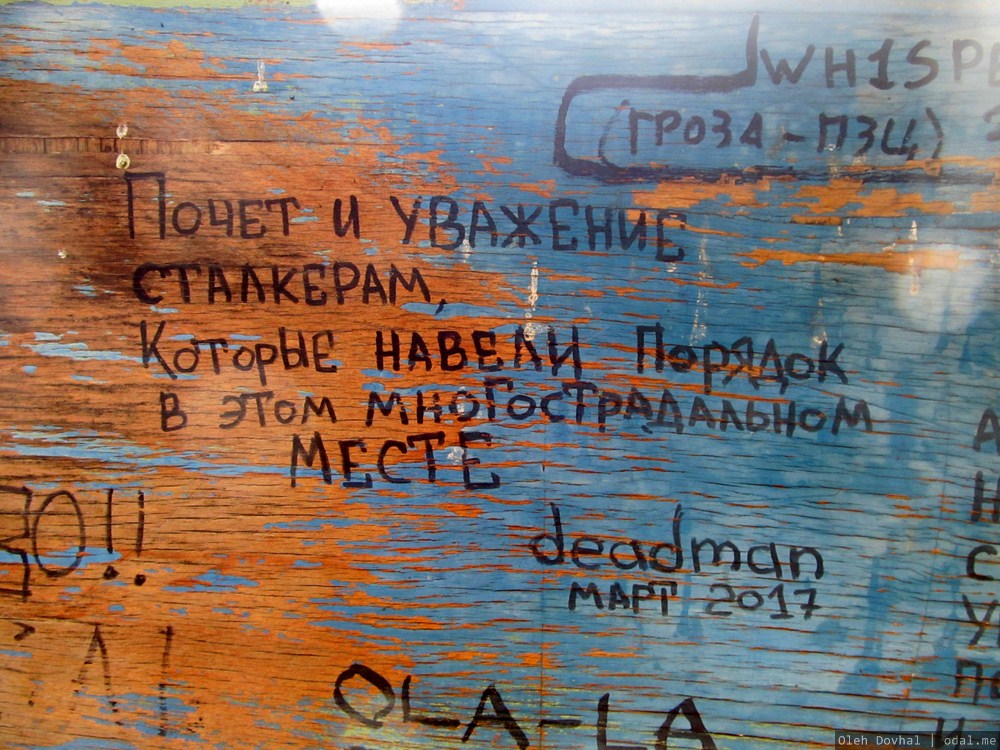 WH1SPE
(ГРОЗА-ПЗЦ)
Почет и уважение
сталкерам,
Которые навели порядок
в этом многострадальном
месте
deadman
март 2017
ДО!!
OL-A-LA
Oleh Dovhal | odal.me